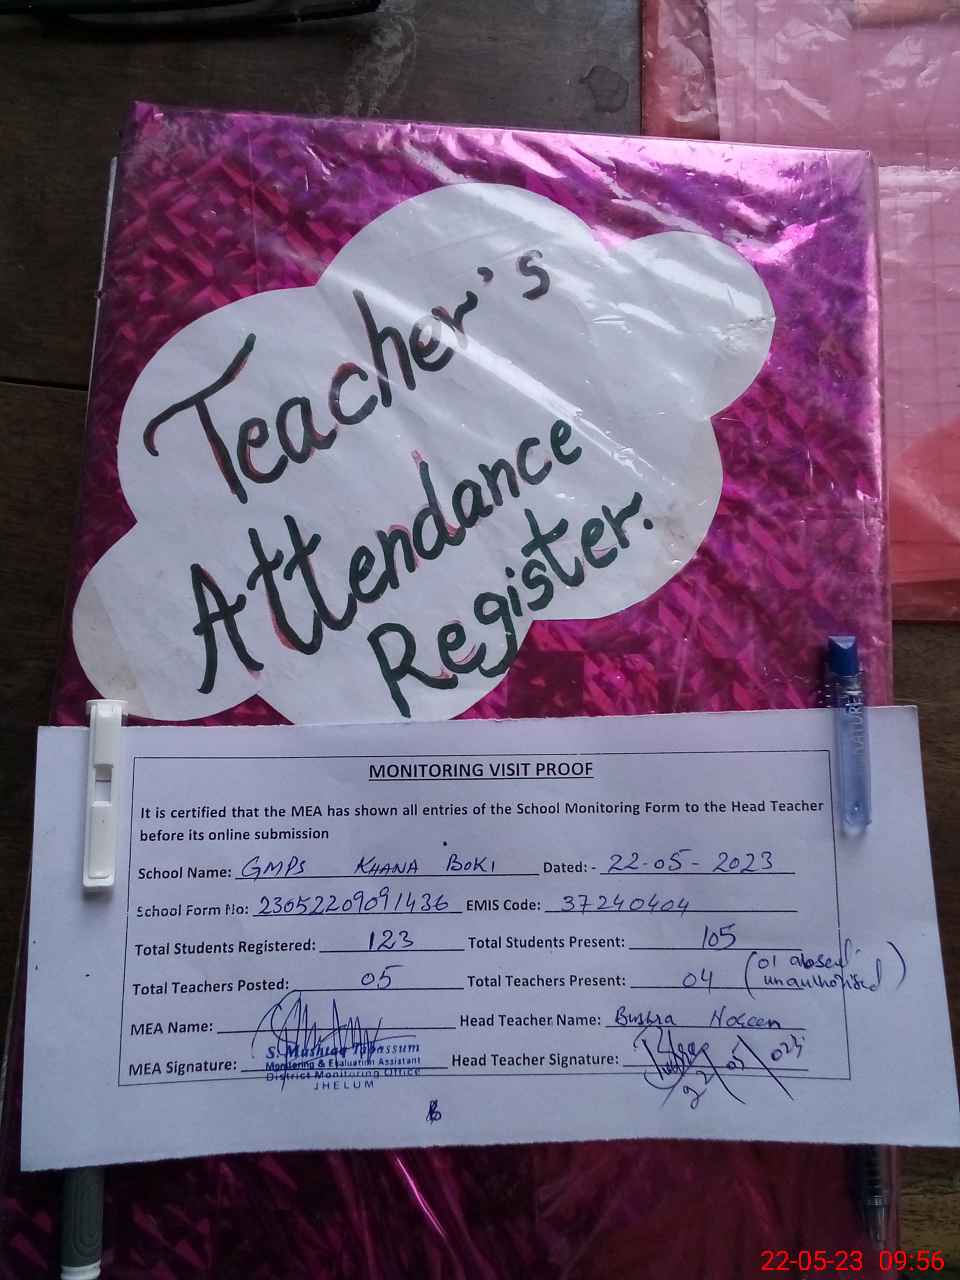 Teacher's
Attendance
Register.
NATURE
MONITORING VISIT PROOF
It is certified that the MEA has shown all entries of the School Monitoring Form to the Head Teacher
before its online submission
School Name: GMPS KHANA BOKI Dated: - 22-05-2023
School Form No: 23052209091436 EMIS Code: 37240404
Total Students Registered: 123 Total Students Present: 105
Total Teachers Posted: 05 Total Teachers Present: 04 (01 absent unauthorised)
MEA Name: Head Teacher Name: Bushra Noseen
MEA Signature: Head Teacher Signature:
S. Mushtaq Tabassum
Monitoring & Evaluation Assistant
District Monitoring Office
JHELUM
22-05-23 09:56